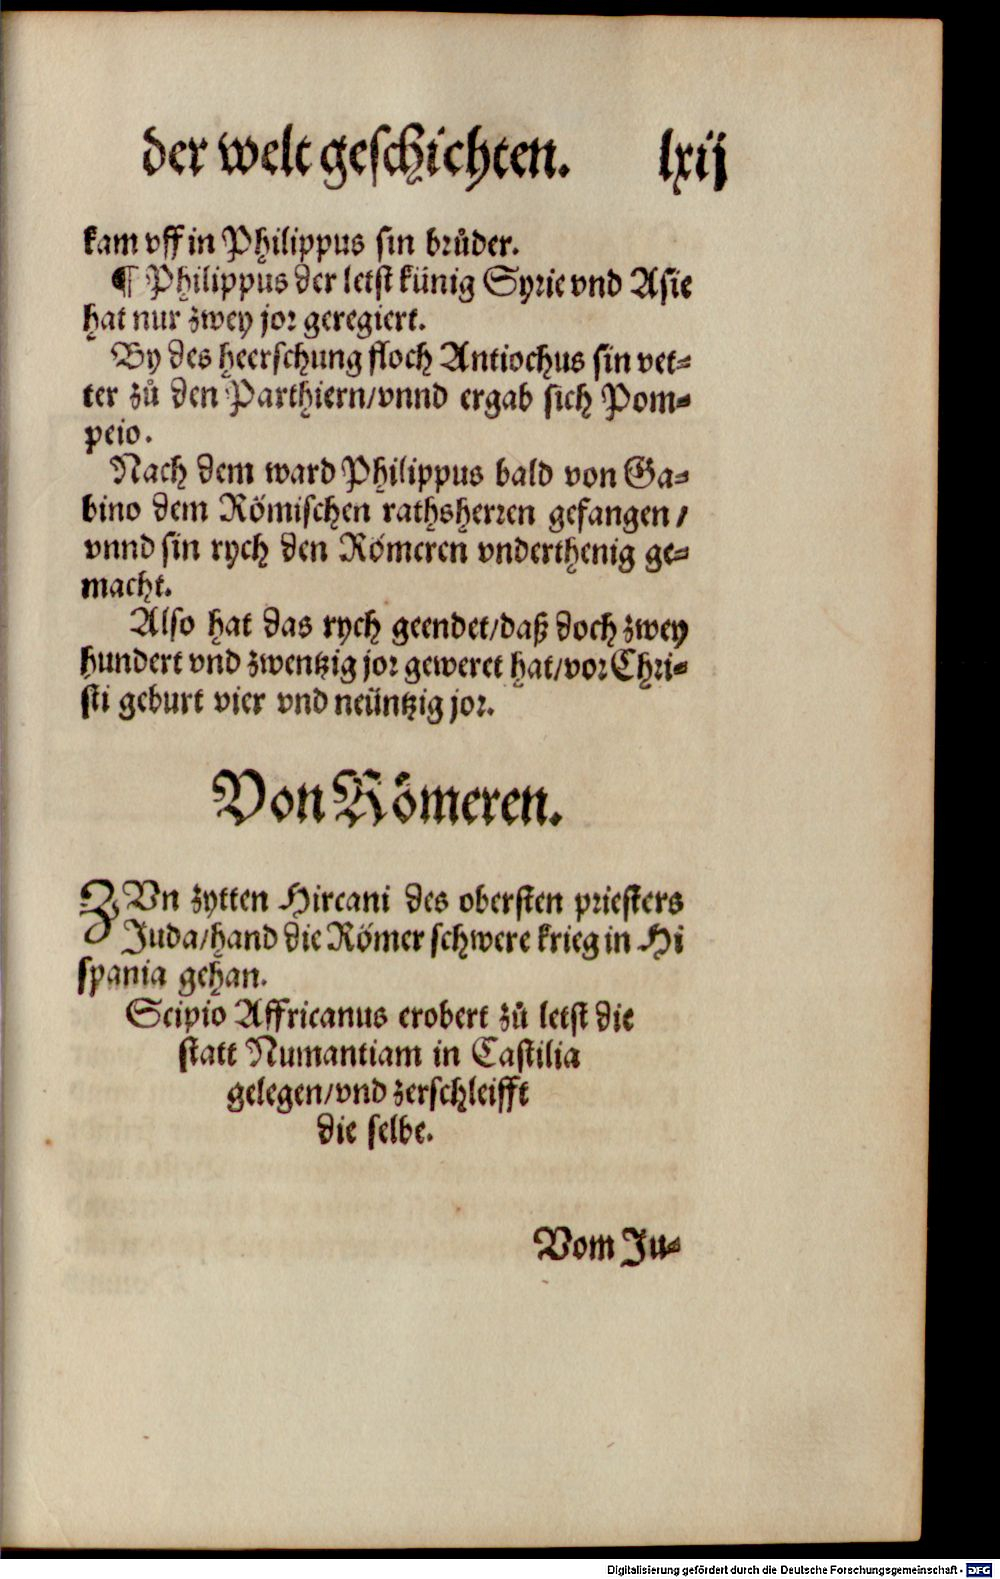 der welt geschichten. lxij
kam vff in Philippus sin brůder.
¶ Philippus der letst künig Syrie vnd Asie
hat nur zwey jor geregiert.
By des heerschung floch Antiochus sin vet⸗
ter zů den Parthiern/vnnd ergab sich Pom⸗
peio.
Nach dem ward Philippus bald von Ga⸗
bino dem Römischen rathsherren gefangen/
vnnd sin rych den Römeren vnderthenig ge⸗
macht.
Also hat das rych geendet/daß doch zwey
hundert vnd zwentzig jor geweret hat/vor Chri⸗
sti geburt vier vnd neüntzig jor.
Von Römeren.
ZVn zytten Hircani des obersten priesters
Juda/hand die Römer schwere krieg in Hi
spania gehan.
Scipio Affricanus erobert zů letst die
statt Numantiam in Castilia
gelegen/vnd zerschleifft
die selbe.
Vom Ju⸗
Digitalisierung gefördert durch die Deutsche Forschungsgemeinschaft - DFG